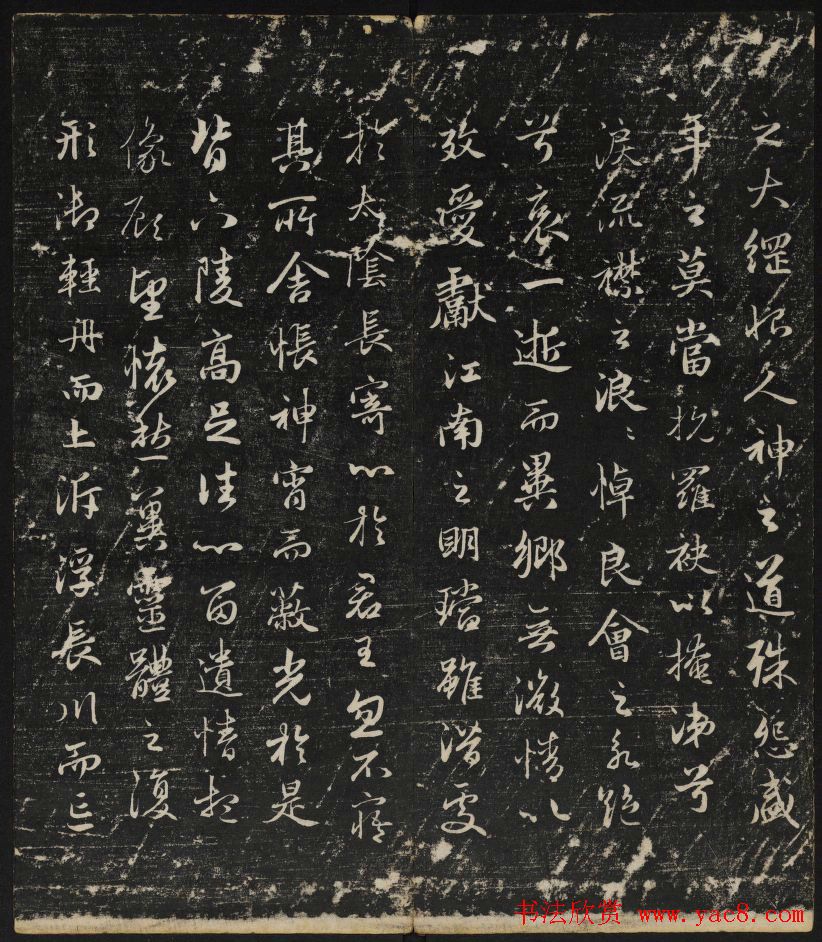 之大綱恨人神之道殊怨盛
年之莫當抗羅袂以掩涕兮
淚流襟之浪〻悼良會之永絕
兮哀一逝而異鄉無微情以
效愛獻江南之明璫雖潛處
於太蔭長寄心於君王忽不寤
其所舍悵神宵而蔽光於是
背下陵高足往心留遺情想
像顧望懷愁冀靈體之復
形御輕舟而上泝浮長川而忘
书法欣赏 www.yac8.com